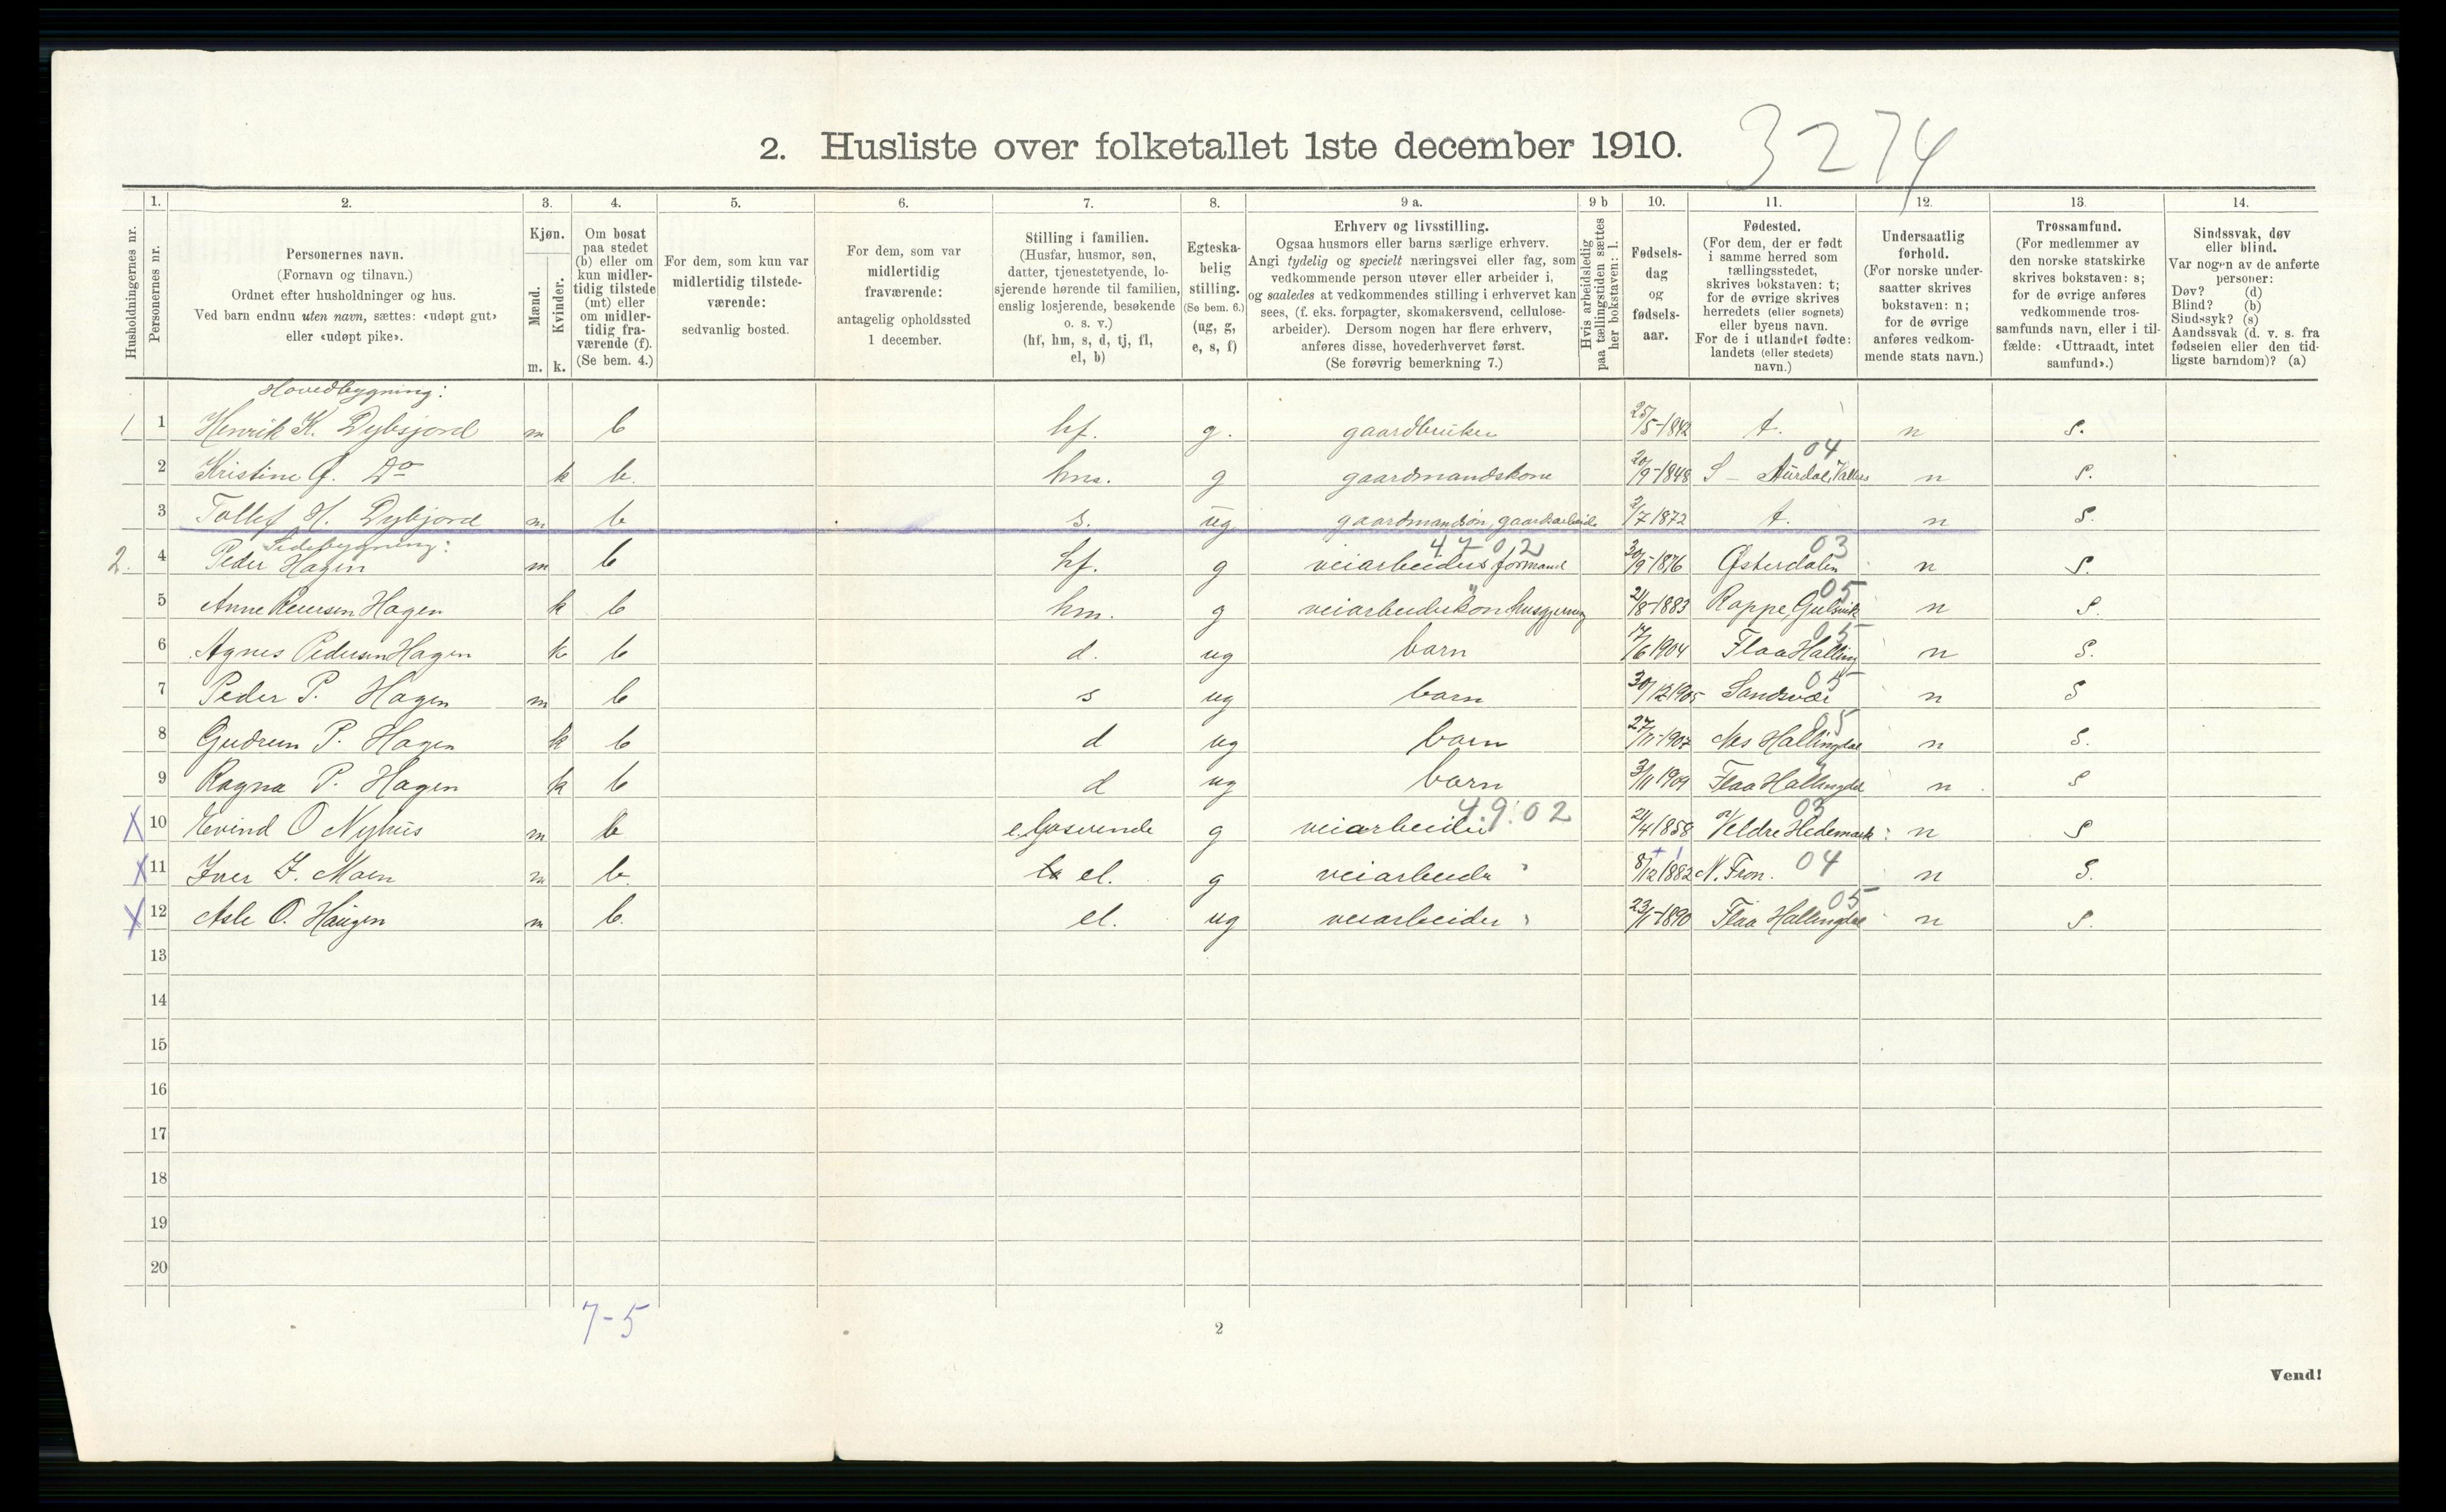 2. Husliste over folketallet 1ste december 1910. 3274
1. 2. 3. 4. 5. 6. 7. 8. 9 a. 9 b 10. 11. 12. 13. 14.
Husholdningernes nr.
Personernes nr.
Personernes navn.
(Fornavn og tilnavn.)
Ordnet efter husholdninger og hus.
Ved barn endnu uten navn, sættes: «udøpt gut»
eller «udøpt pike».
Kjøn.
Mænd.
Kvinder.
m. k.
Om bosat
paa stedet
(b) eller om
kun midler-
tidig tilstede
(mt) eller
om midler-
tidig fra-
værende (f).
(Se bem. 4.)
For dem, som kun var
midlertidig tilstede-
værende:
sedvanlig bosted.
For dem, som var
midlertidig
fraværende:
antagelig opholdssted
1 december.
Stilling i familien.
(Husfar, husmor, søn,
datter, tjenestetyende, lo-
sjerende hørende til familien,
enslig losjerende, besøkende
o. s. v.)
(hf, hm, s, d, tj, fl,
el, b)
Egteska-
belig
stilling.
(Se bem. 6.)
(ug, g,
e, s, f)
Erhverv og livsstilling.
Ogsaa husmors eller barns særlige erhverv.
Angi tydelig og specielt næringsvei eller fag, som
vedkommende person utøver eller arbeider i,
og saaledes at vedkommendes stilling i erhvervet kan
sees, (f. eks. forpagter, skomakersvend, cellulose-
arbeider). Dersom nogen har flere erhverv,
anføres disse, hovederhvervet først.
(Se forøvrig bemerkning 7.)
Hvis arbeidsledig
paa tællingstiden sættes
her bokstaven: l.
Fødsels-
dag
og
fødsels-
aar.
Fødested.
(For dem, der er født
i samme herred som
tællingsstedet,
skrives bokstaven: t;
for de øvrige skrives
herredets (eller sognets)
eller byens navn.
For de i utlandet fødte:
landets (eller stedets)
navn.)
Undersaatlig
forhold.
(For norske under-
saatter skrives
bokstaven: n;
for de øvrige
anføres vedkom-
mende stats navn.)
Trossamfund.
(For medlemmer av
den norske statskirke
skrives bokstaven: s;
for de øvrige anføres
vedkommende tros-
samfunds navn, eller i til-
fælde: «Uttraadt, intet
samfund».)
Sindssvak, døv
eller blind.
Var nogen av de anførte
personer:
Døv? (d)
Blind? (b)
Sindssyk? (s)
Aandssvak (d. v. s. fra
fødselen eller den tid-
ligste barndom)? (a)
Hovedbygning:
1 1 Henrik K. Dybsjord m b hf. g. gaardbruker 25/5-1842 t. n s.
04
2 Kristine G. Do k b. hm. g gaardmandskone 20/9-1848 S-Aurdal, Valdres n s.
3 Tollef H. Dybjord m b s. ug gaardmandsøn, gaardsarbeide 2/7 1872 t. n s.
Sidebygning: 4702 03
2. 4 Peder Hagen m b hf. g veiarbeiders formand 30/9-1876 Østerdalen n s.
05
5 Anne Hagen k b hm. g husgjerning 21/8-1883 Gulsvik n s.
05
6 Agnes Pedersen Hagen k b d. ug barn 17/6 1904 Flaa Halling n s.
05
7 Peder P. Hagen m b s ug barn 30/12 1905 Sandsvær n s
05
8 Gudrun P. Hagen k b d ug barn 27/11-1907 Nes Hallingdal n s.
9 Ragna P. Hagen k b d ug barn 3/11 1909 Flaa Hallingdal n s
4902 03
X 10 Eivind O Nyhus m b e. losjerende g veiarbeider 21/4 1858 Veldre Hedemark n s
X 11 Iver I. Moen m b el. g veiarbeider 8/12 1882 N. Fron. 04 n s.
05
X 12 Asle O. Haugen m b. el. ug veiarbeider 23/1-1890 Flaa Hallingdal n s.
13
14
15
16
17
18
19
20
7-5
2
Vend!